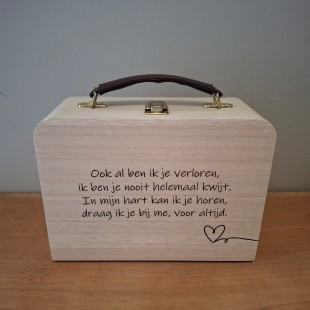 Ook al ben ik je verloren,
ik ben je nooit helemaal kwijt.
In mijn hart kan ik je horen,
draag ik je bij me, voor altijd.